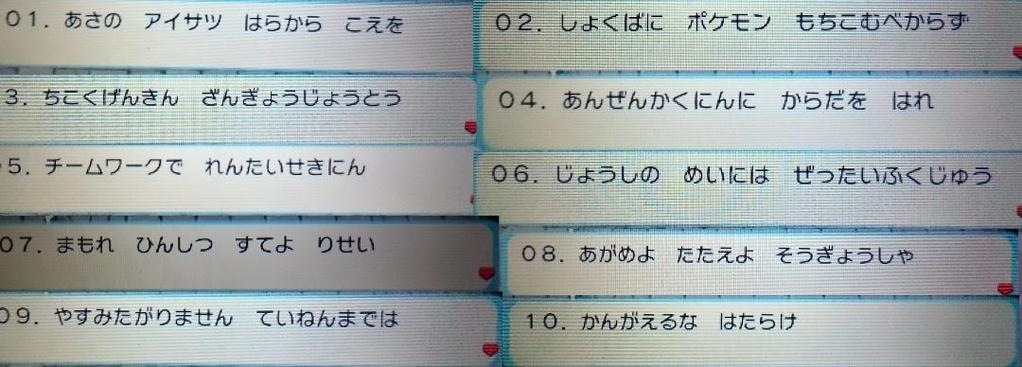 01. あさの　アイサツ　はらから　こえを
02. しょくばに　ポケモン　もちこむべからず
3. ちこくげんきん　ざんぎょうじょうとう
04. あんぜんかくにんに　からだを　はれ
5. チームワークで　れんたいせきにん
06. じょうしの　めいには　ぜったいふくじゅう
07. まもれ　ひんしつ　すてよ　りせい
08. あがめよ　たたえよ　そうぎょうしゃ
09. やすみたがりません　ていねんまでは
10. かんがえるな　はたらけ